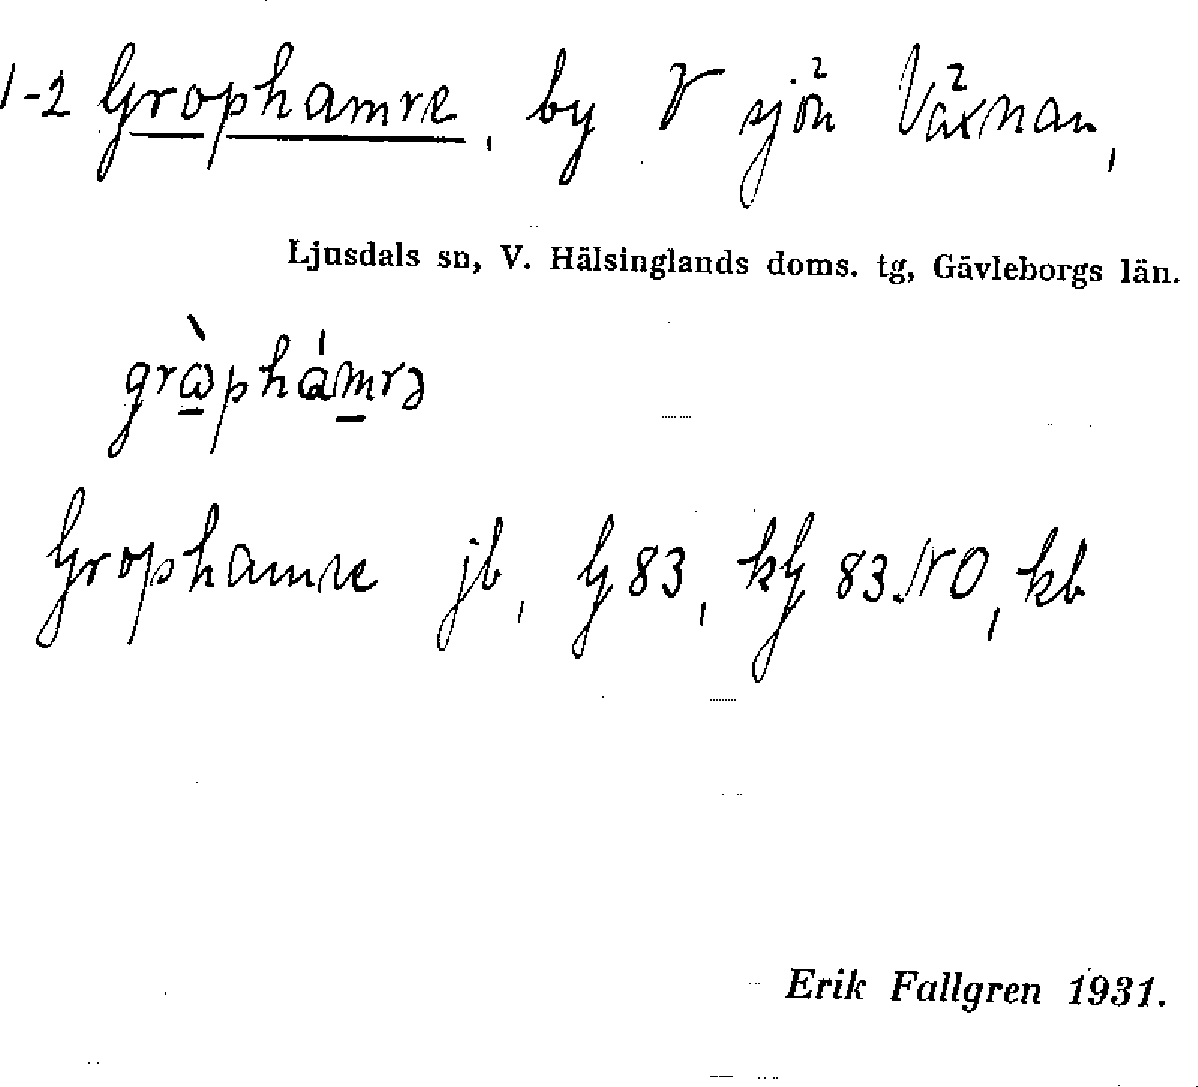 1-2 Grophamre, by V sjön Växnan,
Ljusdals sn, V. Hälsinglands doms. tg, Gävleborgs län.
grὼphámrə
Grophamre jb, G 83, kG 83 NO, kb
Erik Fallgren 1931.